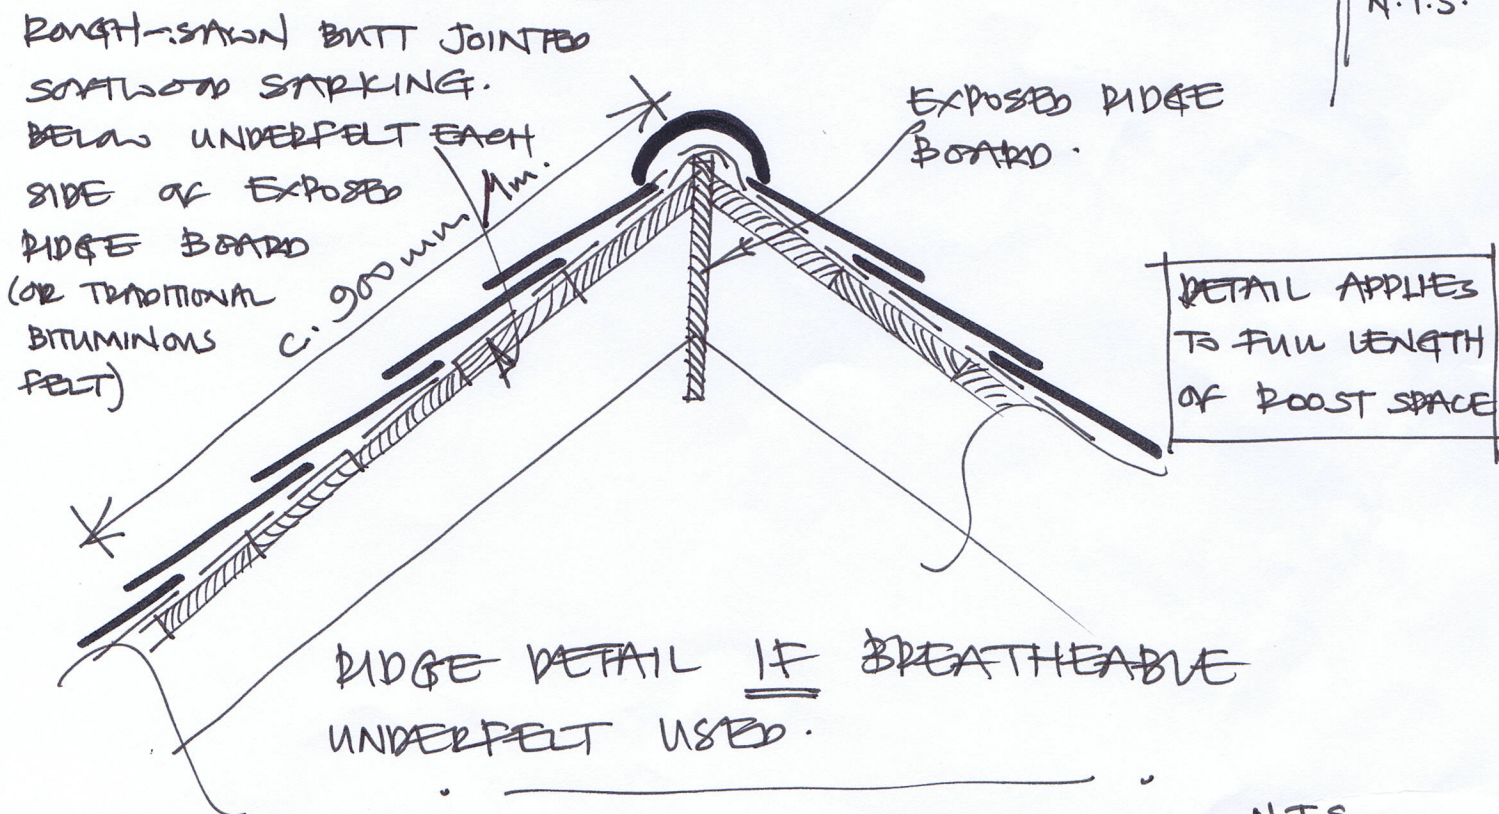 ROUGH-SAWN BUTT JOINTED
SOFTWOOD SARKING.
BELOW UNDERFELT EACH
SIDE OF EXPOSED
RIDGE BOARD
(OR TRADITIONAL
BITUMINOUS
FELT)
c. 900mm Mm.
EXPOSED RIDGE
BOARD.
N.T.S.
DETAIL APPLIES
TO FULL LENGTH
OF ROOST SPACE
RIDGE DETAIL IF BREATHEABLE
UNDERFELT USED.
N.T.S